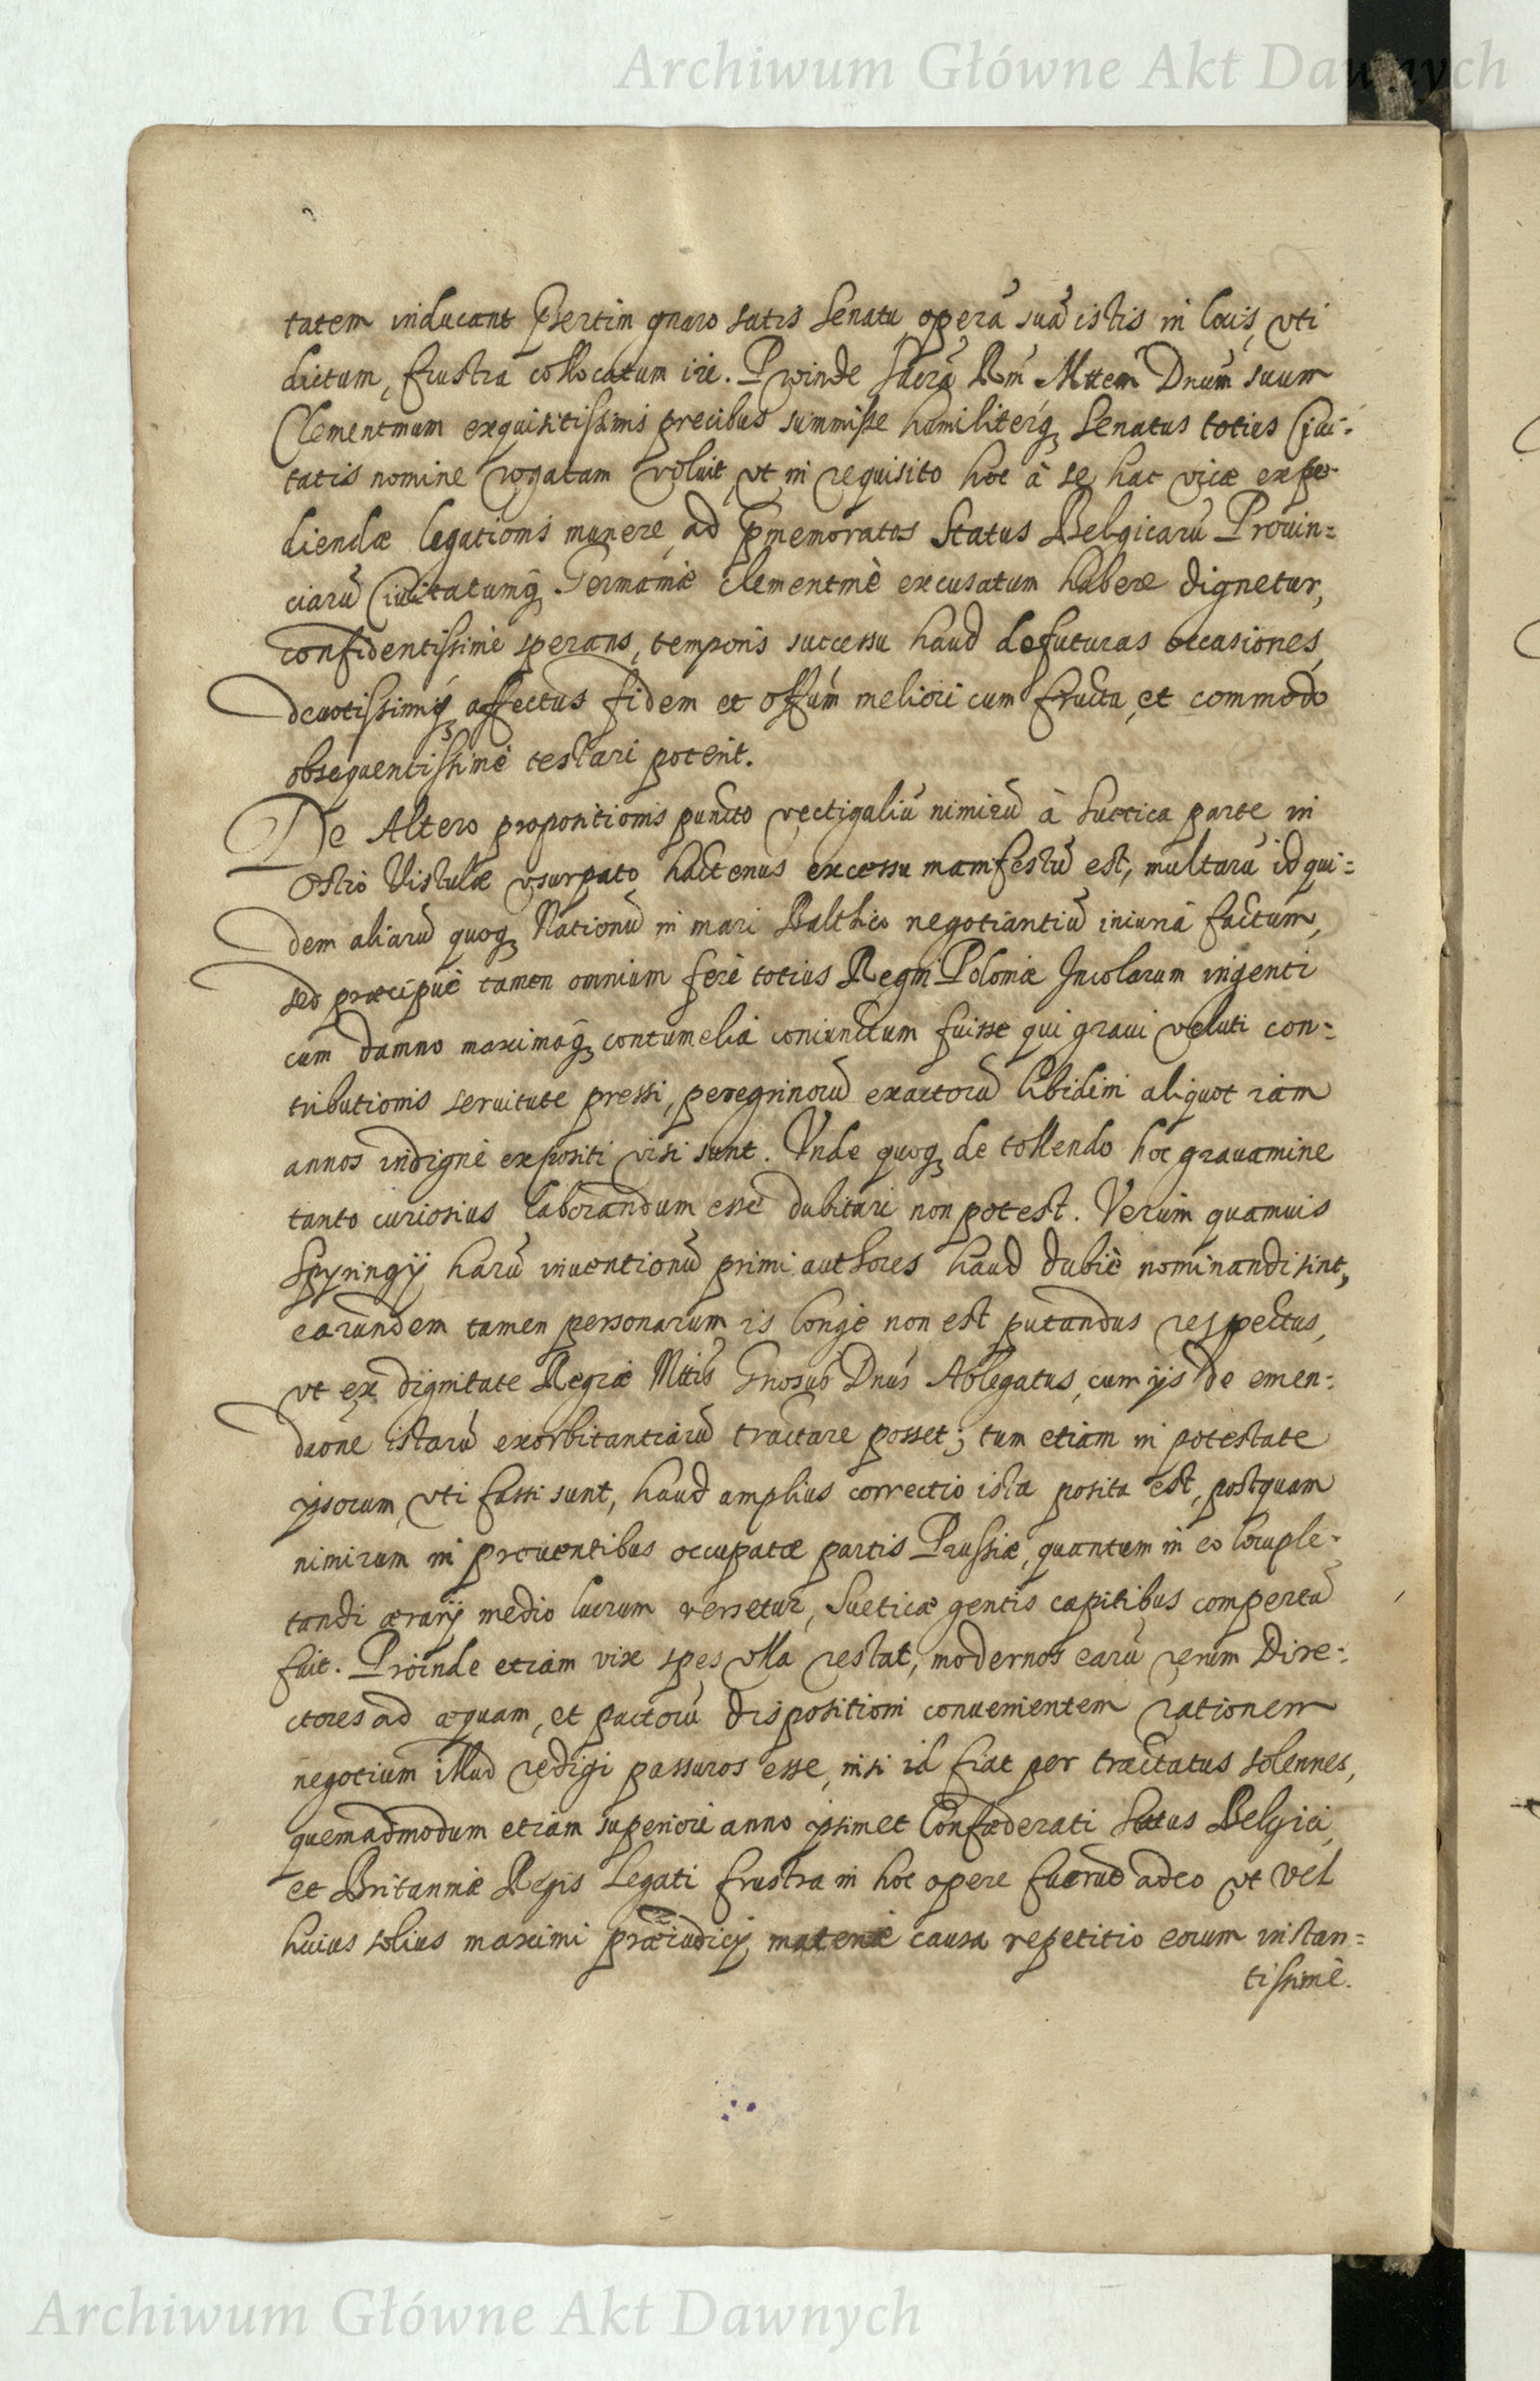 Archiwum Główne Akt Dawnych
tatem inducant Psertim gnaro satis Senatu, operā suā istis in locis, vti
dictum, frustra collocatum iri. Proinde Sacrā Rm̄ Mttem Dnūm suum
Clementmum exquisitissimis precibus summisse humiliterq₃ Senatus totius Ciui-
tatis nomine rogatam voluit, vt in requisito hoc à se hac vice expe-
diendæ legationis munere, ad pmemoratos Status Belgicarū Prouin=
ciarū Ciuitatumq₃ Germaniæ clementmè excusatum habere dignetur,
confidentissimè sperans, temporis successu haud defuturas occasiones,
deuotissimiq₃ affectus fidem et offūm meliori cum fructu, et commodo
obsequentissimè testari poterit.
De Altero propositionis puncto vectigaliū nimirū à Suetica parte in
Ostio Vistulæ vsurpato hactenus excessu manifestū est, multarū id qui=
dem aliarū quoq₃ Nationū in mari Balthico negotiantiū iniuriâ factum,
sed præcipuè tamen omnium ferè totius Regni Poloniæ Incolarum ingenti
cum damno maximaq₃ contumeliâ coniunctum fuisse qui graui veluti con=
tributionis seruitute pressi, peregrinorū exactorū libidini aliquot iam
annos indignè expositi visi sunt. Vnde quoq₃ de tollendo hoc grauamine
tanto curiosius laborandum esse dubitari non potest. Verùm quamuis
Spyringij harū inuentionū primi authores haud dubiè nominandi sint,
earundem tamen personarum is longè non est putandus respectus,
vt ex dignitate Regiæ Mttis Gnosus Dnūs Ablegatus, cum ijs de emen=
daōne istarū exorbitantiarū tractare posset; tum etiam in potestate
ipsorum, vti fassi sunt, haud amplius correctio ista posita est, postquam
nimirum in prouentibus occupatæ partis Prussiæ, quantum in eo locuple-
tandi ærarij medio lucrum versetur, Sueticæ gentis capitibus compertū
fuit. Proinde etiam vix spes vlla restat, modernos earū rerum Dire=
ctores ad æquam, et pactorū dispositioni conuenientem rationem
negotium illud redigi passuros esse, nisi id fiat per tractatus solennes,
quemadmodum etiam superiori anno ipsimet Confæderati Status Belgici,
et Britanniæ Regis Legati frustra in hoc opere fuerūt adeo vt vel
huius solius maximi præiudicij materiæ causa repetitio eorum instan=
tissimè.
Archiwum Główne Akt Dawnych